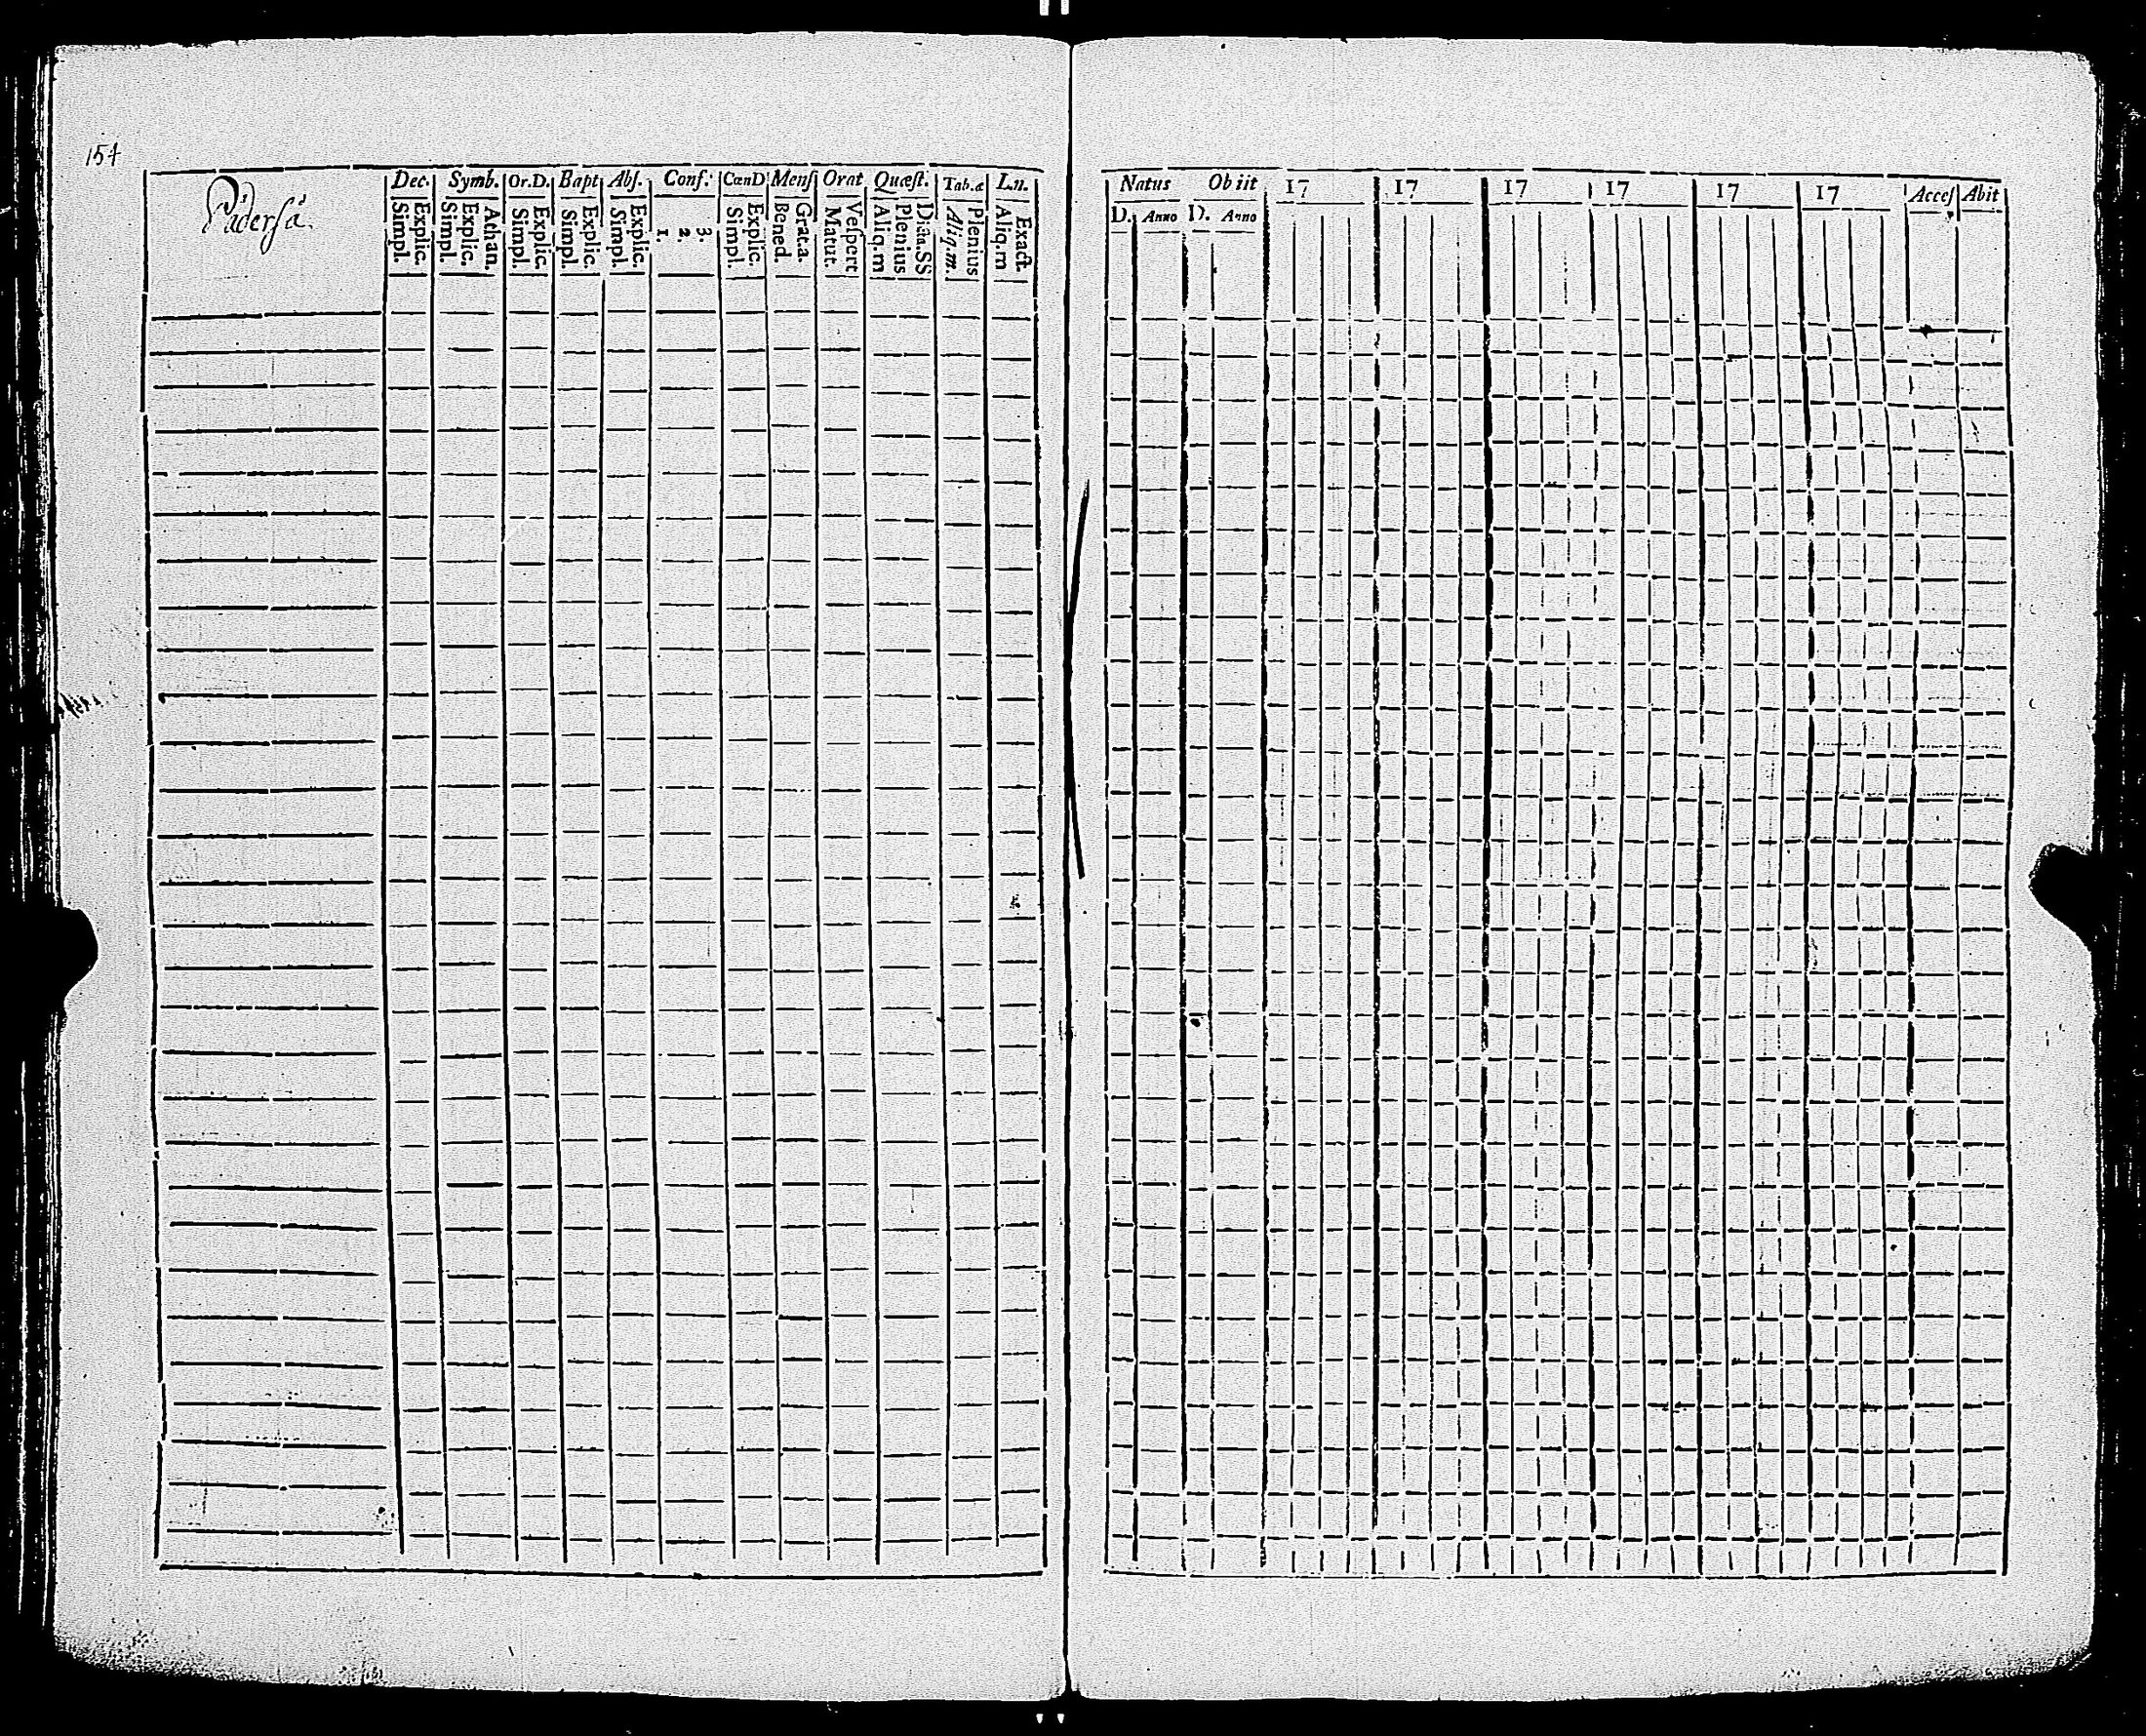 154
Wäderså.
Dec. Symb. Or.D. Bapt Abſ. Conf: CœnD Menſ Orat Quæſt. Tab.æ L.n.
Simpl. Explic. Simpl. Explic. Athan. Simpl. Explic. Simpl. Explic. Simpl. Explic. 1. 2. 3. Simpl. Explic. Bened. Grat.a. Matut. Veſpert Aliq.m Plenius Aliq.m. Plenius Aliq.m Exact.
Natus Obiit 17 17 17 17 17 17 Acceſ Abit
D. Anno D. Anno